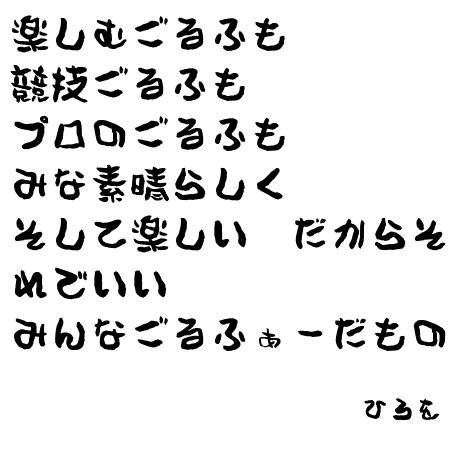 楽しむごるふも
競技ごるふも
プロのごるふも
みな素晴らしく
そして楽しい　だからそ
れでいい
みんなごるふぁーだもの
ひろを